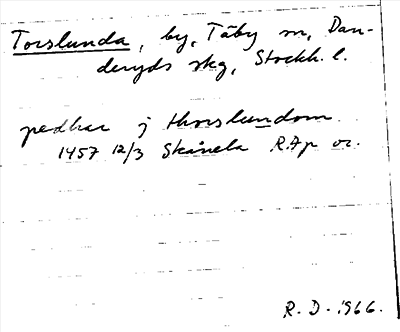 Torslunda, by, Täby sn, Dan-
deryds skg, Stockh. l.
pedhar j thorslundom
1457 12/3 Skånela R.Ap or.
R. D. 1966.